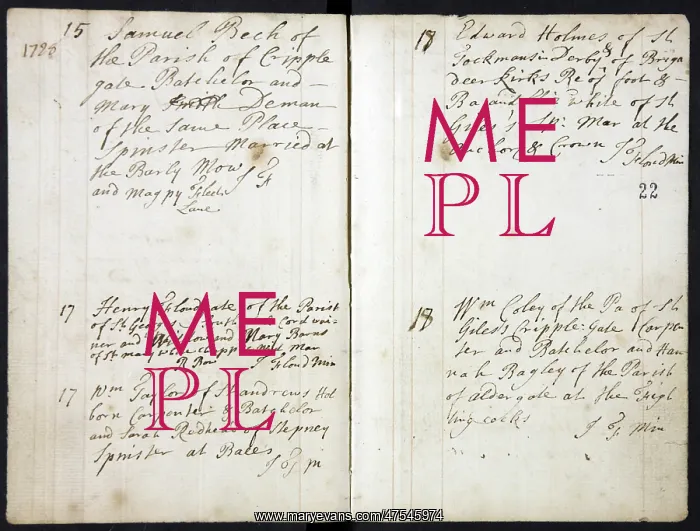 1725
15 Samuel Beck of
the Parish of Cripple
gate Batchelor and —
Mary Smith Deman
of the Same Place —
Spinster Married at
the Barly Mow J F
and Magpy Fleet
Lane
17 Henry of the Parish
of St Georges South Cordwai-
ner and Mary Barns
of St Mary white chapple
J Floud Min
17 Wm Taylor of St Andrews Hol
born Carpenter & Batchelor
and Sarah Redhead of Stepney
Spinster at Bates
J F M
18 Edward Holmes of St
in Derby & of Briga
deer Kirks Re of foot & —
Ba and white of St
Giles's Sp: Mar at the
Anchor & Crown J Floud Min
22
18 Wm Coley of the Pa of St
Giles's Cripple:Gate Carpen
ter and Batchelor and Han
nah Bagley of the Parish
of aldergate at the Figh
ting cocks J F Min
ME
PL
ME
PL
www.maryevans.com/47545974